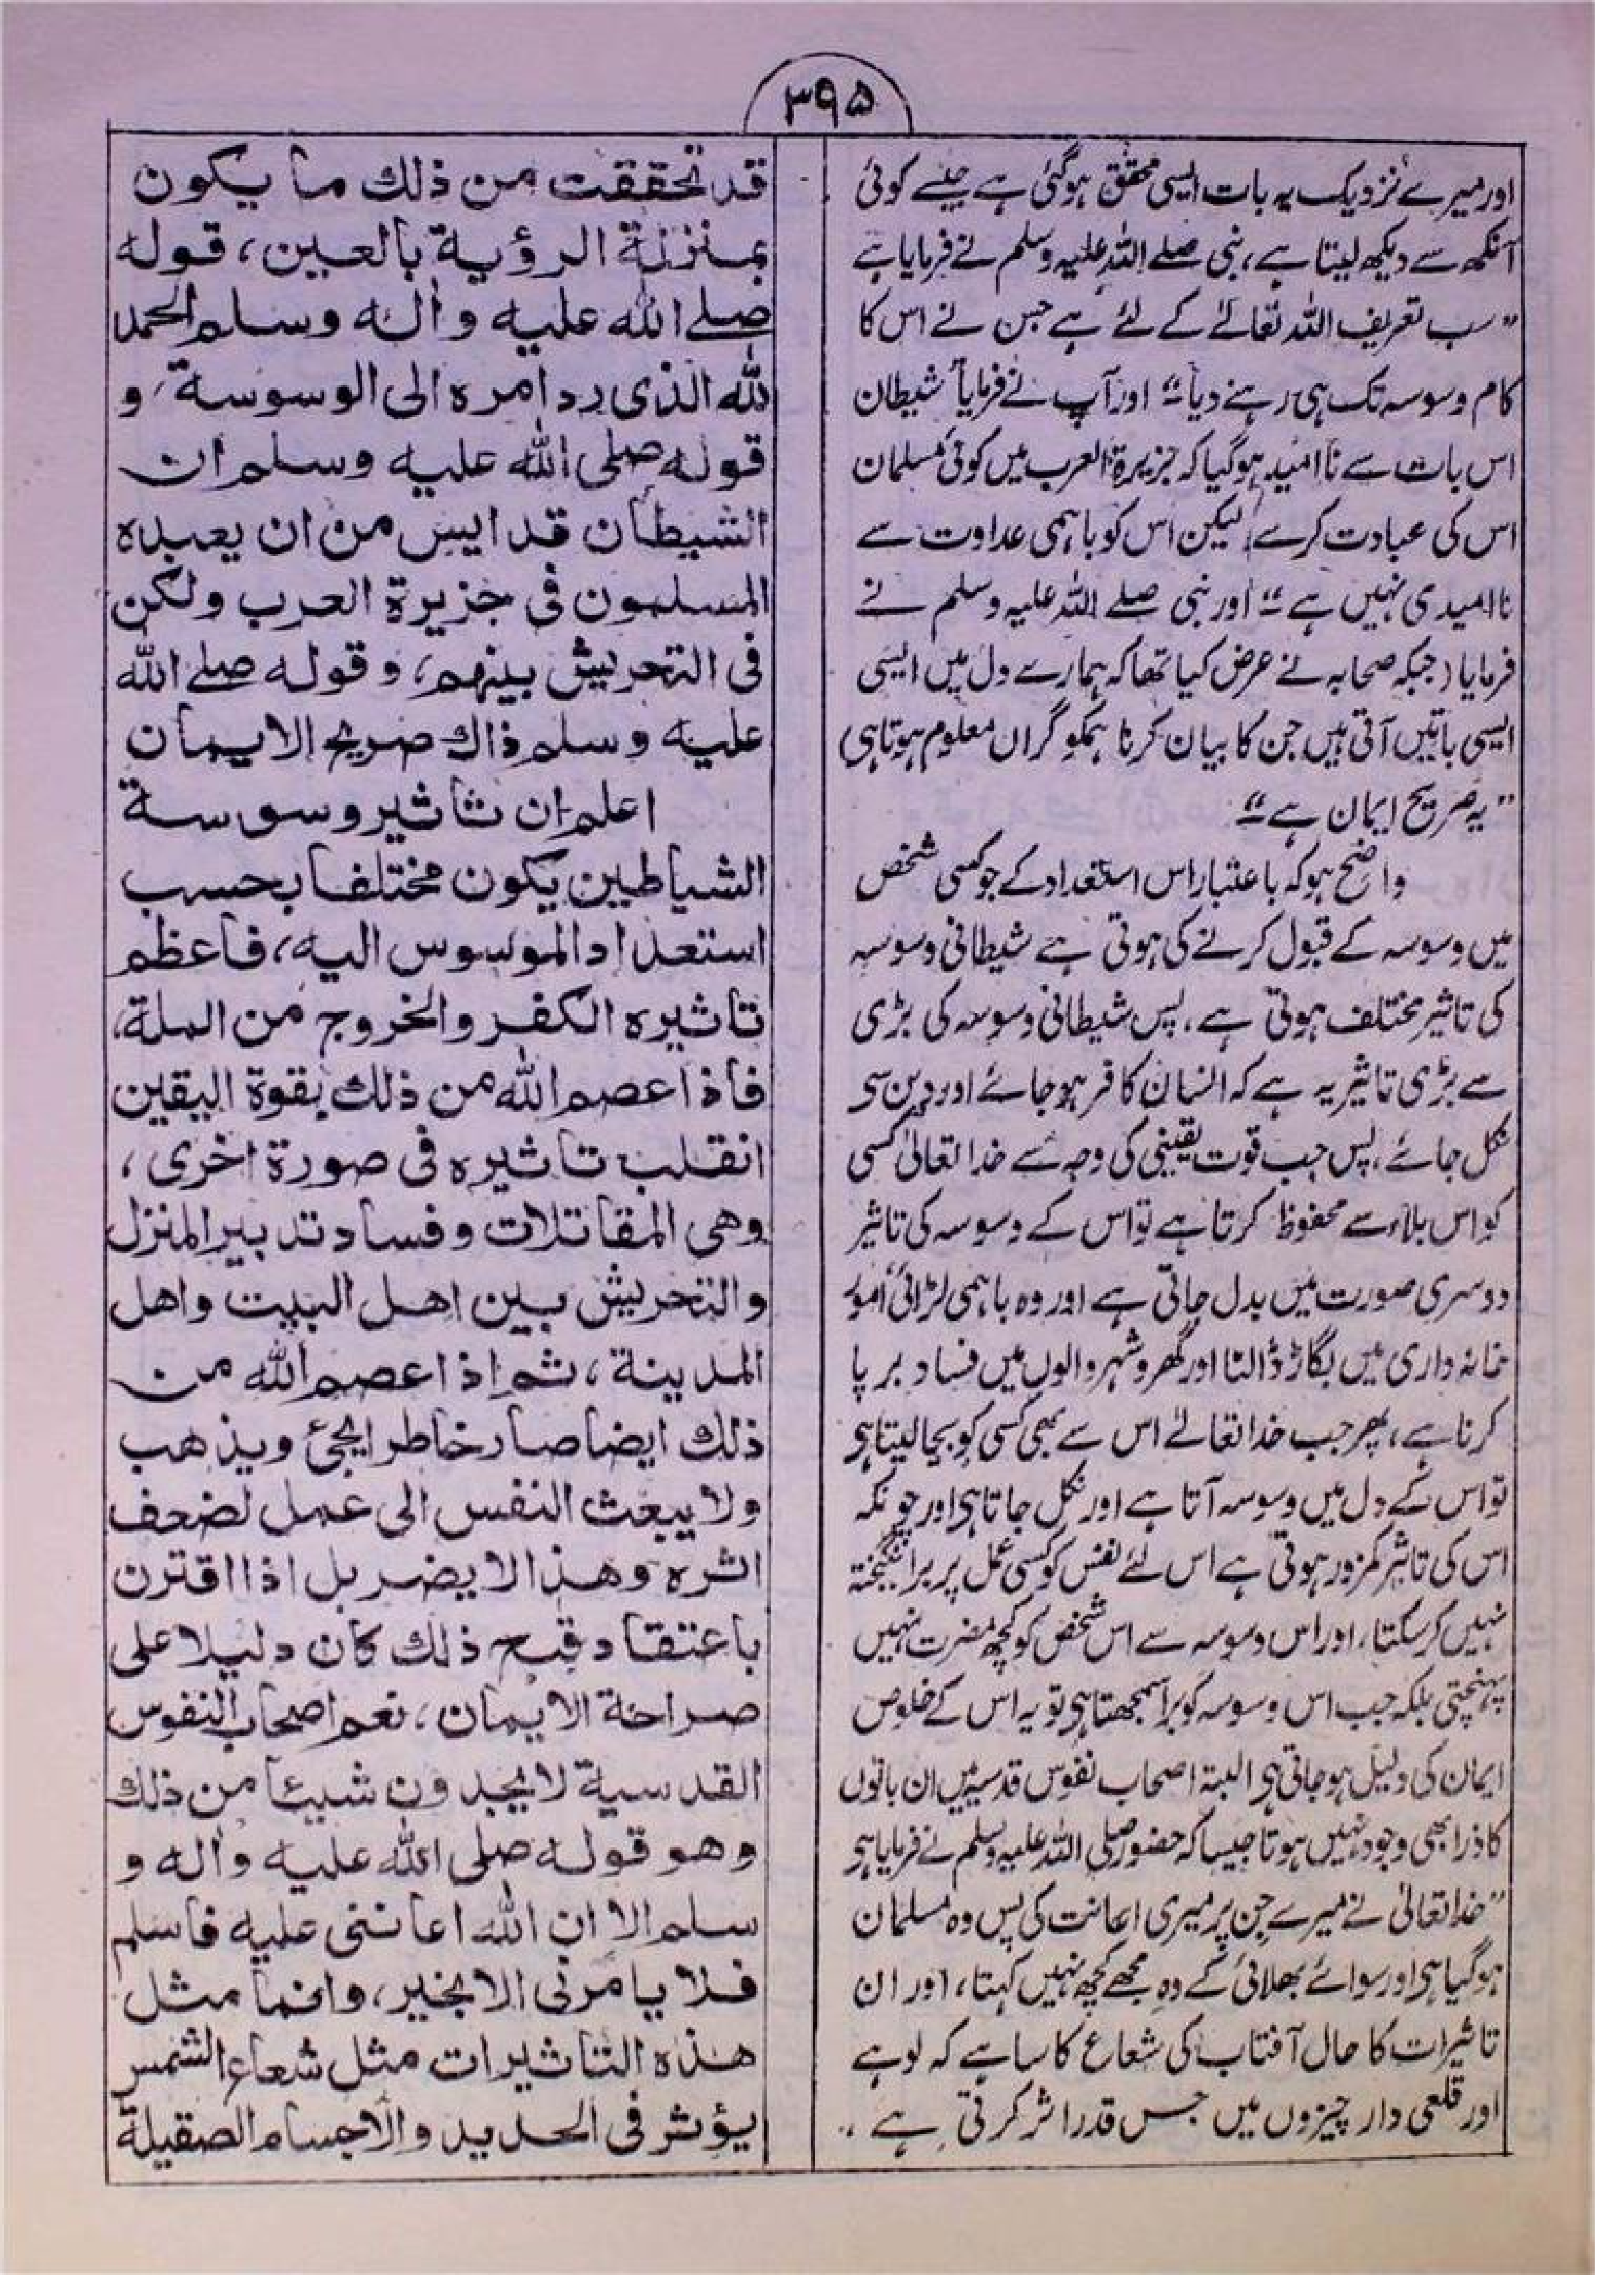 ۳۹۵
اور میرے نزدیک یہ بات ایسی محقق ہوگئی ہے جیسے کوئی
آنکھ سے دیکھ لیتا ہے، نبی صلے اللہ علیہ وسلم نے فرمایا ہے
"سب تعریف اللہ تعالےٰ کے لئے ہے جس نے اس کا
کام وسوسہ تک ہی رہنے دیا" اور آپ نے فرمایا "شیطان
اس بات سے نا امید ہوگیا کہ جزیرۃ العرب میں کوئی مسلمان
اس کی عبادت کرے، لیکن اس کو باہمی عداوت سے
نا امیدی نہیں ہے" اور نبی صلے اللہ علیہ وسلم نے
فرمایا (جبکہ صحابہ نے عرض کیا تھا کہ ہمارے دل میں ایسی
ایسی باتیں آتی ہیں جن کا بیان کرنا ہمکو گراں معلوم ہوتا ہی
"یہ صریح ایمان ہے"
واضح ہو کہ باعتبار اس استعداد کے جو کسی شخص
میں وسوسہ کے قبول کرنے کی ہوتی ہے شیطانی وسوسہ
کی تاثیر مختلف ہوتی ہے، پس شیطانی وسوسہ کی بڑی
سے بڑی تاثیر یہ ہے کہ انسان کافر ہو جائے اور دین سی
نکل جائے، پس جب قوت یقینی کی وجہ سے خدا تعالیٰ کسی
کو اس بلاء سے محفوظ کرتا ہے تو اس کے وسوسہ کی تاثیر
دوسری صورت میں بدل جاتی ہے اور وہ باہمی لڑائی، امور
خانہ داری میں بگاڑ ڈالنا اور گھر و شہر والوں میں فساد برپا
کرنا ہے، پھر جب خدا تعالےٰ اس سے بھی کسی کو بچا لیتا ہی
تو اس کے دل میں وسوسہ آتا ہے اور نکل جاتا ہی اور چونکہ
اس کی تاثیر کمزور ہوتی ہے اس لئے نفس کو کسی عمل پر برانگیختہ
نہیں کر سکتا، اور اس وسوسہ سے اس شخص کو کچھ مضرت نہیں
پہنچتی بلکہ جب اس وسوسہ کو برا سمجھتا ہی تو یہ اس کے خلوص
ایمان کی دلیل ہو جاتی ہی البتہ اصحاب نفوس قدسیہ میں ان باتوں
کا ذرا بھی وجود نہیں ہوتا جیسا کہ حضور صلی اللہ علیہ وسلم نے فرمایا ہی
"خدا تعالیٰ نے میرے جن پر میری اعانت کی پس وہ مسلمان
ہوگیا ہی اور سوائے بھلائی کے وہ مجھے کچھ نہیں کہتا، اور ان
تاثیرات کا حال آفتاب کی شعاع کا سا ہے کہ لوہے
اور قلعی دار چیزوں میں جس قدر اثر کرتی ہے
قد تحققت من ذلك ما يكون
بمنزلة الرؤية بالعين، قوله
صلے الله عليه واٰله وسلم الحمد
لله الذى رد امره الى الوسوسة، و
قوله صلى الله عليه وسلم ان
الشيطان قد ايس من ان يعبده
المسلمون فى جزيرة العرب ولكن
فى التحريش بينهم، وقوله صلے الله
عليه وسلم ذاك صريح الايمان
اعلم ان تاثير وسوسة
الشياطين يكون مختلفا بحسب
استعداد الموسوس اليه، فاعظم
تاثيره الكفر والخروج من الملة،
فاذا عصم الله من ذلك بقوة اليقين
انقلب تاثيره فى صورة اخرى،
وهى المقاتلات وفساد تدبير المنزل
والتحريش بين اهل البيت واهل
المدينة، ثم اذا عصم الله من
ذلك ايضا صار خاطرا يجئ ويذهب
ولا يبعث النفس الى عمل لضعف
اثره وهذا لا يضر بل اذا اقترن
باعتقاد قبح ذلك كان دليلا على
صراحة الايمان، نعم اصحاب النفوس
القدسية لا يجدون شيئا من ذلك
وهو قوله صلى الله عليه واٰله و
سلم الا ان الله اعاننى عليه فاسلم
فلا يامرنى الا بخير، وانما مثل
هذه التاثيرات مثل شعاع الشمس
يؤثر فى الحديد والاجسام الصقيلة